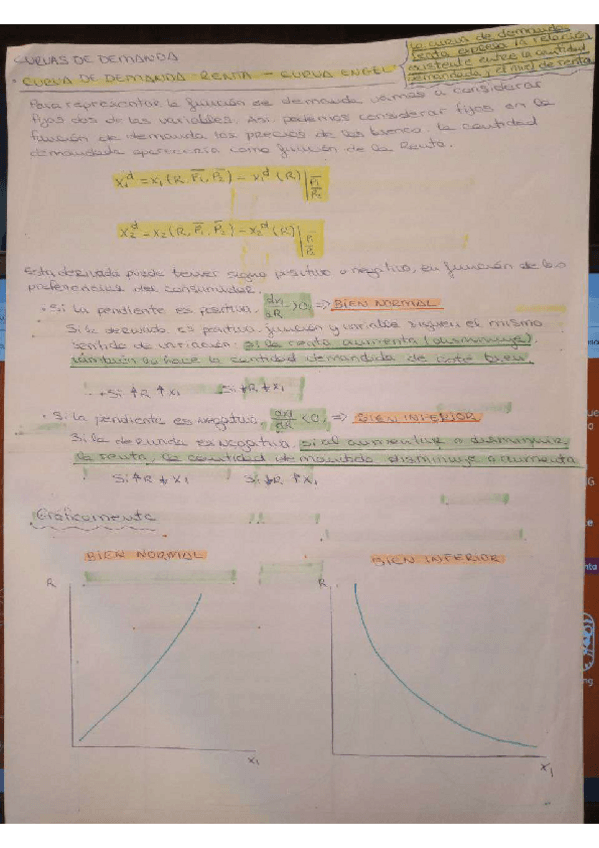 CURVAS DE DEMANDA
• CURVA DE DEMANDA - RENTA - CURVA ENGEL
La curva de demanda
renta expresa la relación
existente entre la cantidad
demandada y el nivel de renta
Para representar la función de demanda vamos a considerar
fijas dos de las variables. Así podemos considerar fijos en la
función de demanda los precios de los bienes. La cantidad
demandada aparecería como función de la Renta.
X₁ᵈ = X₁(R, P̄₁, P̄₂) = X₁ᵈ(R)
X₂ᵈ = X₂(R, P̄₁, P̄₂) = X₂ᵈ(R)
Esta derivada puede tener signo positivo o negativo, en función de las
preferencias del consumidor.
• Si la pendiente es positiva, >0 ⇒ BIEN NORMAL
Si la derivada es positiva, función y variables siguen el mismo
sentido de variación: si la renta aumenta (disminuye)
también lo hace la cantidad demandada de este bien.
Si ↑R ↑X₁ Si ↓R ↓X₁
• Si la pendiente es negativa, <0, ⇒ BIEN INFERIOR
Si la derivada es negativa, si al aumentar o disminuir
la renta, la cantidad demandada disminuye o aumenta
Si ↑R ↓X₁ Si ↓R ↑X₁
Gráficamente
BIEN NORMAL BIEN INFERIOR
R R
X₁ X₁